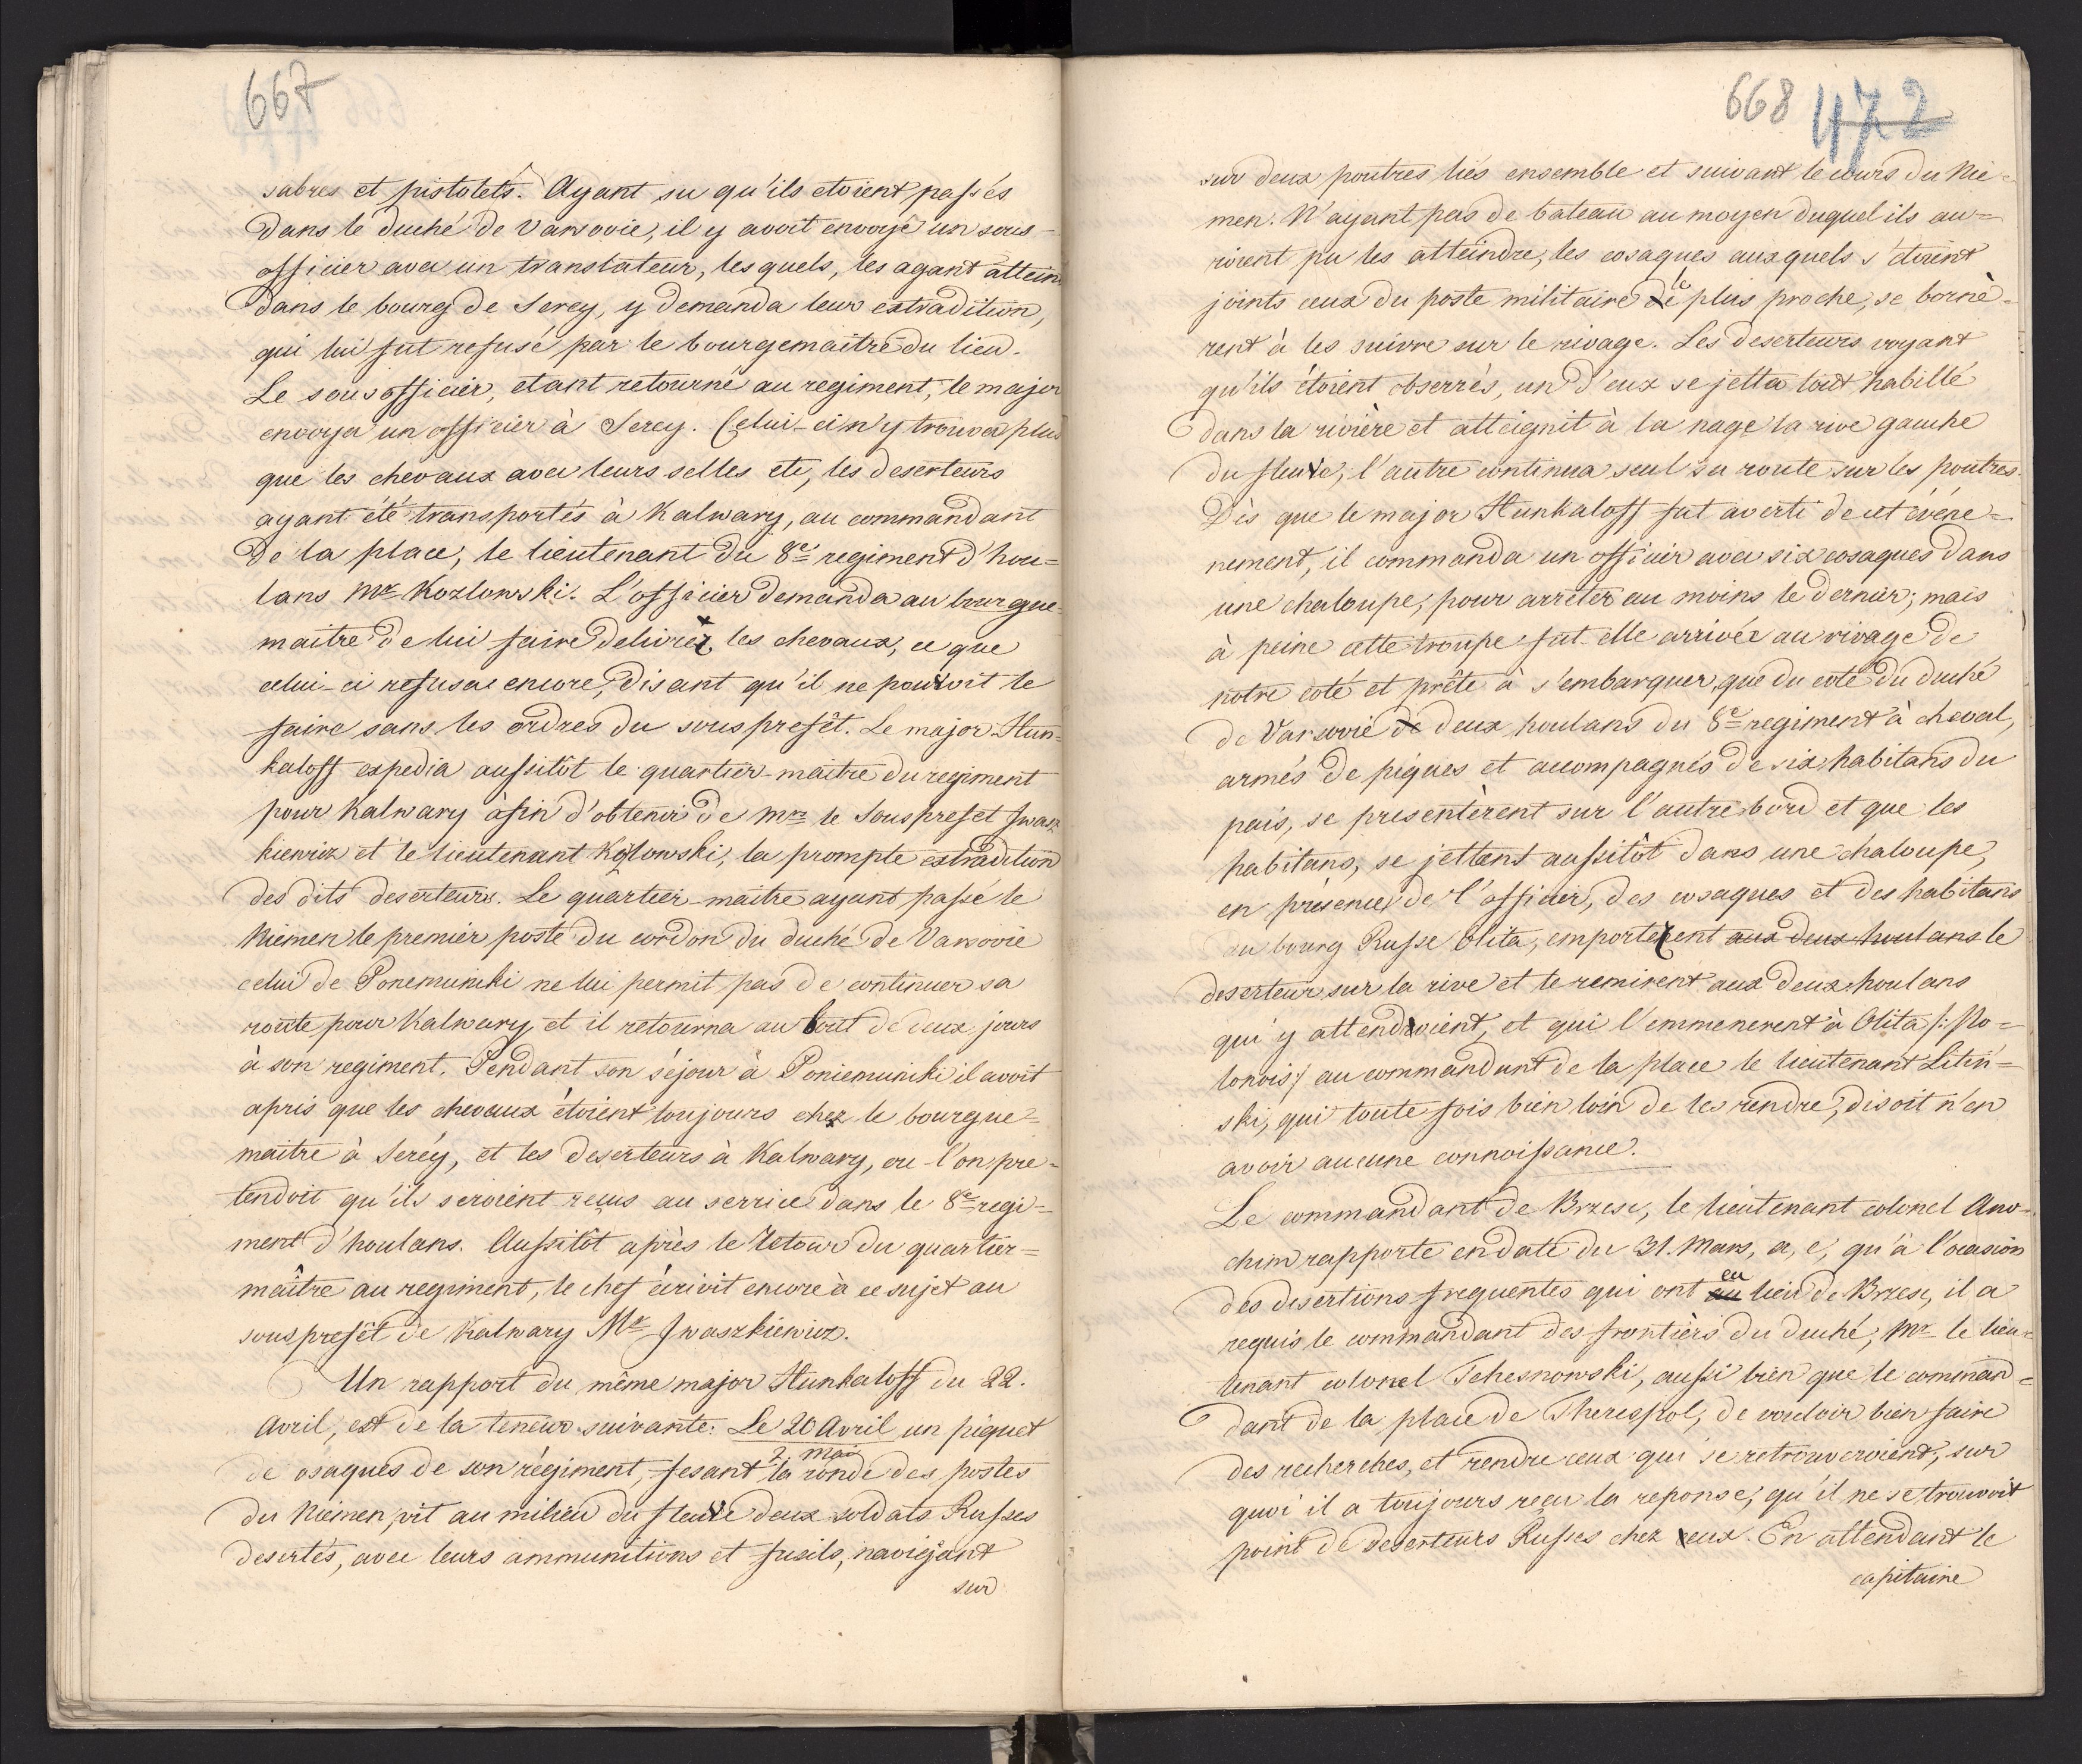 667
sabres et pistolets. Ayant su qu'ils etoient passés
dans le duché de Varsovie, il y avoit envoyé un sous-
officier avec un translateur, lesquels, les ayant attein
dans le bourg de Serey, y demanda leur extradition,
qui lui fut refusé par le bourgemaitre du lieu.
Le sousofficier, etant retourné au regiment, le major
envoya un officier à Serey. Celui-ci n'y trouva plus
que les chevaux avec leurs selles etc, les deserteurs
ayant été transportés à Kalwary, au commandant
de la place, le lieutenant du 8e regiment d'hou=
lans Mr Kozlowski. L'officier demanda au bourgue-
maitre de lui faire delivrer les chevaux, ce que
celui-ci refusa encore, disant qu'il ne pouvoit le
faire sans les ordres du sousprefêt. Le major Stun=
kaloff expedia aussitôt le quartier-maitre du regiment
pour Kalwary afin d'obtenir de Mrs le Sousprefet Iwasz
kiewicz et le lieutenant Kozlowski, la prompte extradition
des dits deserteurs. Le quartier-maitre ayant passé le
Niemen le premier poste du cordon du duché de Varsovie
celui de Ponemuniki ne lui permit pas de continuer sa
route pour Kalwary, et il retourna au bout de deux jours
à son regiment. Pendant son séjour à Poniemuniki il avoit
apris que les chevaux étoient toujours chez le bourgue=
maitre à Seréy, et les deserteurs à Kalwary, ou l'on pre=
tendoit qu'ils seroient reçus au service dans le 8e regi=
ment d'houlans. Aussitôt après le retour du quartier=
maître au regiment, le chef écrivit encore à ce sujet au
sousprefêt de Kalwary Mr Iwaszkiewicz.
Un rapport du même major Stunkaloff du 22.
Avril, est de la teneur suivante: Le 20 Avril un piquet
2. Mai
de cosaques de son régiment, fesant la ronde des postes
du Niemen, vit au milieu du fleuve deux soldats Russes
desertés, avec leurs ammunitions et fusils, naviejant
sur
668 472
sur deux poutres liés ensemble et suivant le cours du Nie=
men. N'ayant pas de bateau au moyen duquel ils au=
roient pu les atteindre, les cosaques auxquels s'étoient
joints ceux du poste militaire le plus proche, se bornè=
rent à les suivre sur le rivage. Les deserteurs voyant
qu'ils étoient observés, un d'eux se jetta tout habillé
dans la rivière et atteignit à la nage la rive gauche
du fleuve, l'autre continua seul sa route sur les poutres.
Dès que le major Stunkaloff fut averti de cet événe=
nement, il commanda un officier avec six cosaques dans
une chaloupe, pour arrêter au moins le dernier; mais
à peine cette troupe fut-elle arrivée au rivage de
notre coté et prête à s'embarquer, que du coté du duché
de Varsovie de deux houlans du 8e regiment à cheval,
armés de piques et accompagnés de six habitans du
pais, se presentèrent sur l'autre bord et que les
habitans, se jettent aussitôt dans une chaloupe,
en présence de l'officier, des cosaques et des habitans
du bourg Russe Olita, emporterent aux deux houlans le
deserteur sur la rive et le remirent aux deux houlans
qui y attendoient, et qui l'emmenerent à Olita /: Po=
lonois / au commandant de la place le lieutenant Litin=
ski, qui toute fois bien loin de les rendre, disoit n'en
avoir aucune connoissance.
Le commandant de Brzesc, le lieutenant colonel Ano=
chim rapporte en date du 31. Mars, a, c, qu'à l'ocasion
des desertions frequentes qui ont eu lieu de Brzesc, il a
requis le commandant des frontièrs du duché, Mr le lieu=
tenant colonel Tchesnowski, aussi bien que le comman=
dant de la place de Therespol, de vouloir bien faire
des recherches, et rendre ceux qui se retrouveroient, sur
quoi il a toujours reçu la reponse, qu'il ne se trouvoit
point de deserteurs Russes chez eux. En attendant le
capitaine